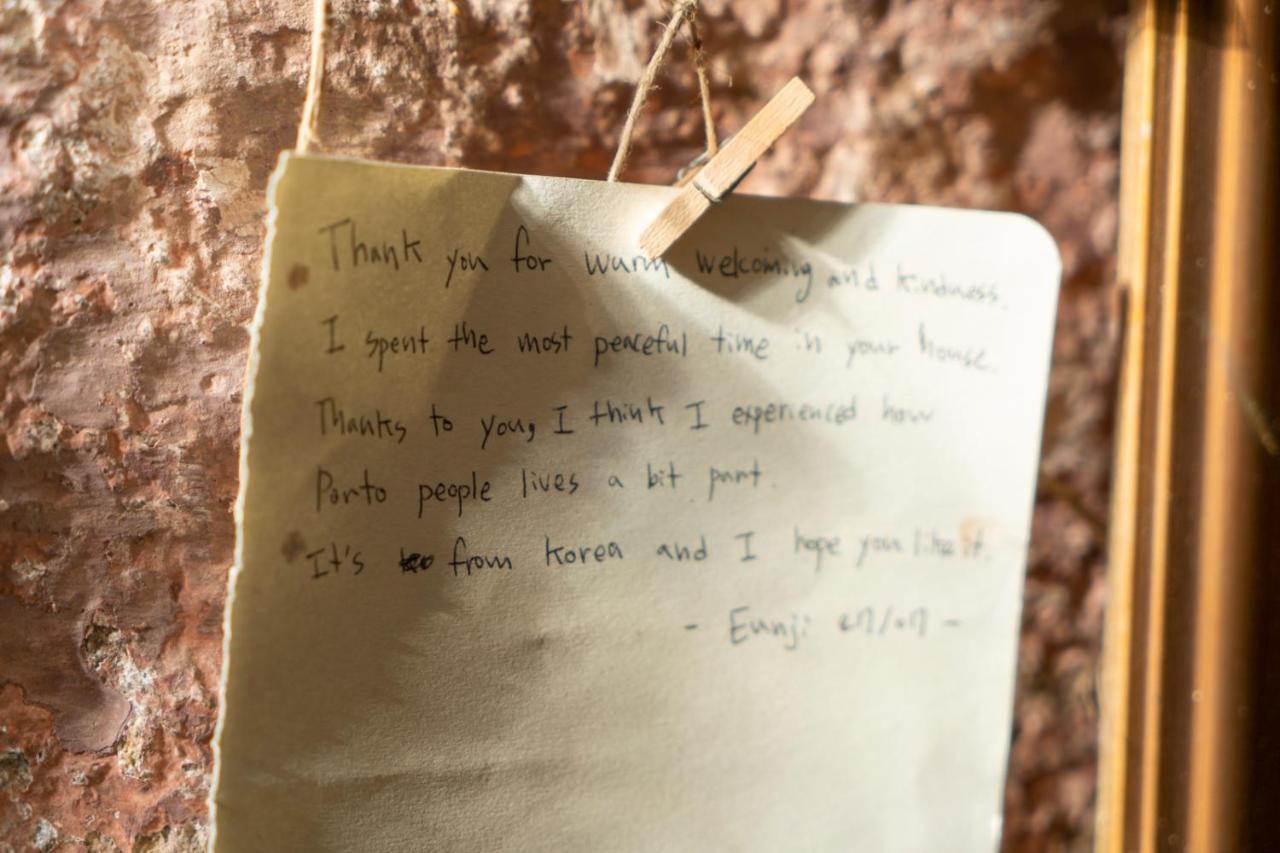 Thank you for warm welcoming and kindness.
I spent the most peaceful time in your house.
Thanks to you, I think I experienced how
Porto people lives a bit part.
It's from Korea and I hope you like it.
- Eunji -